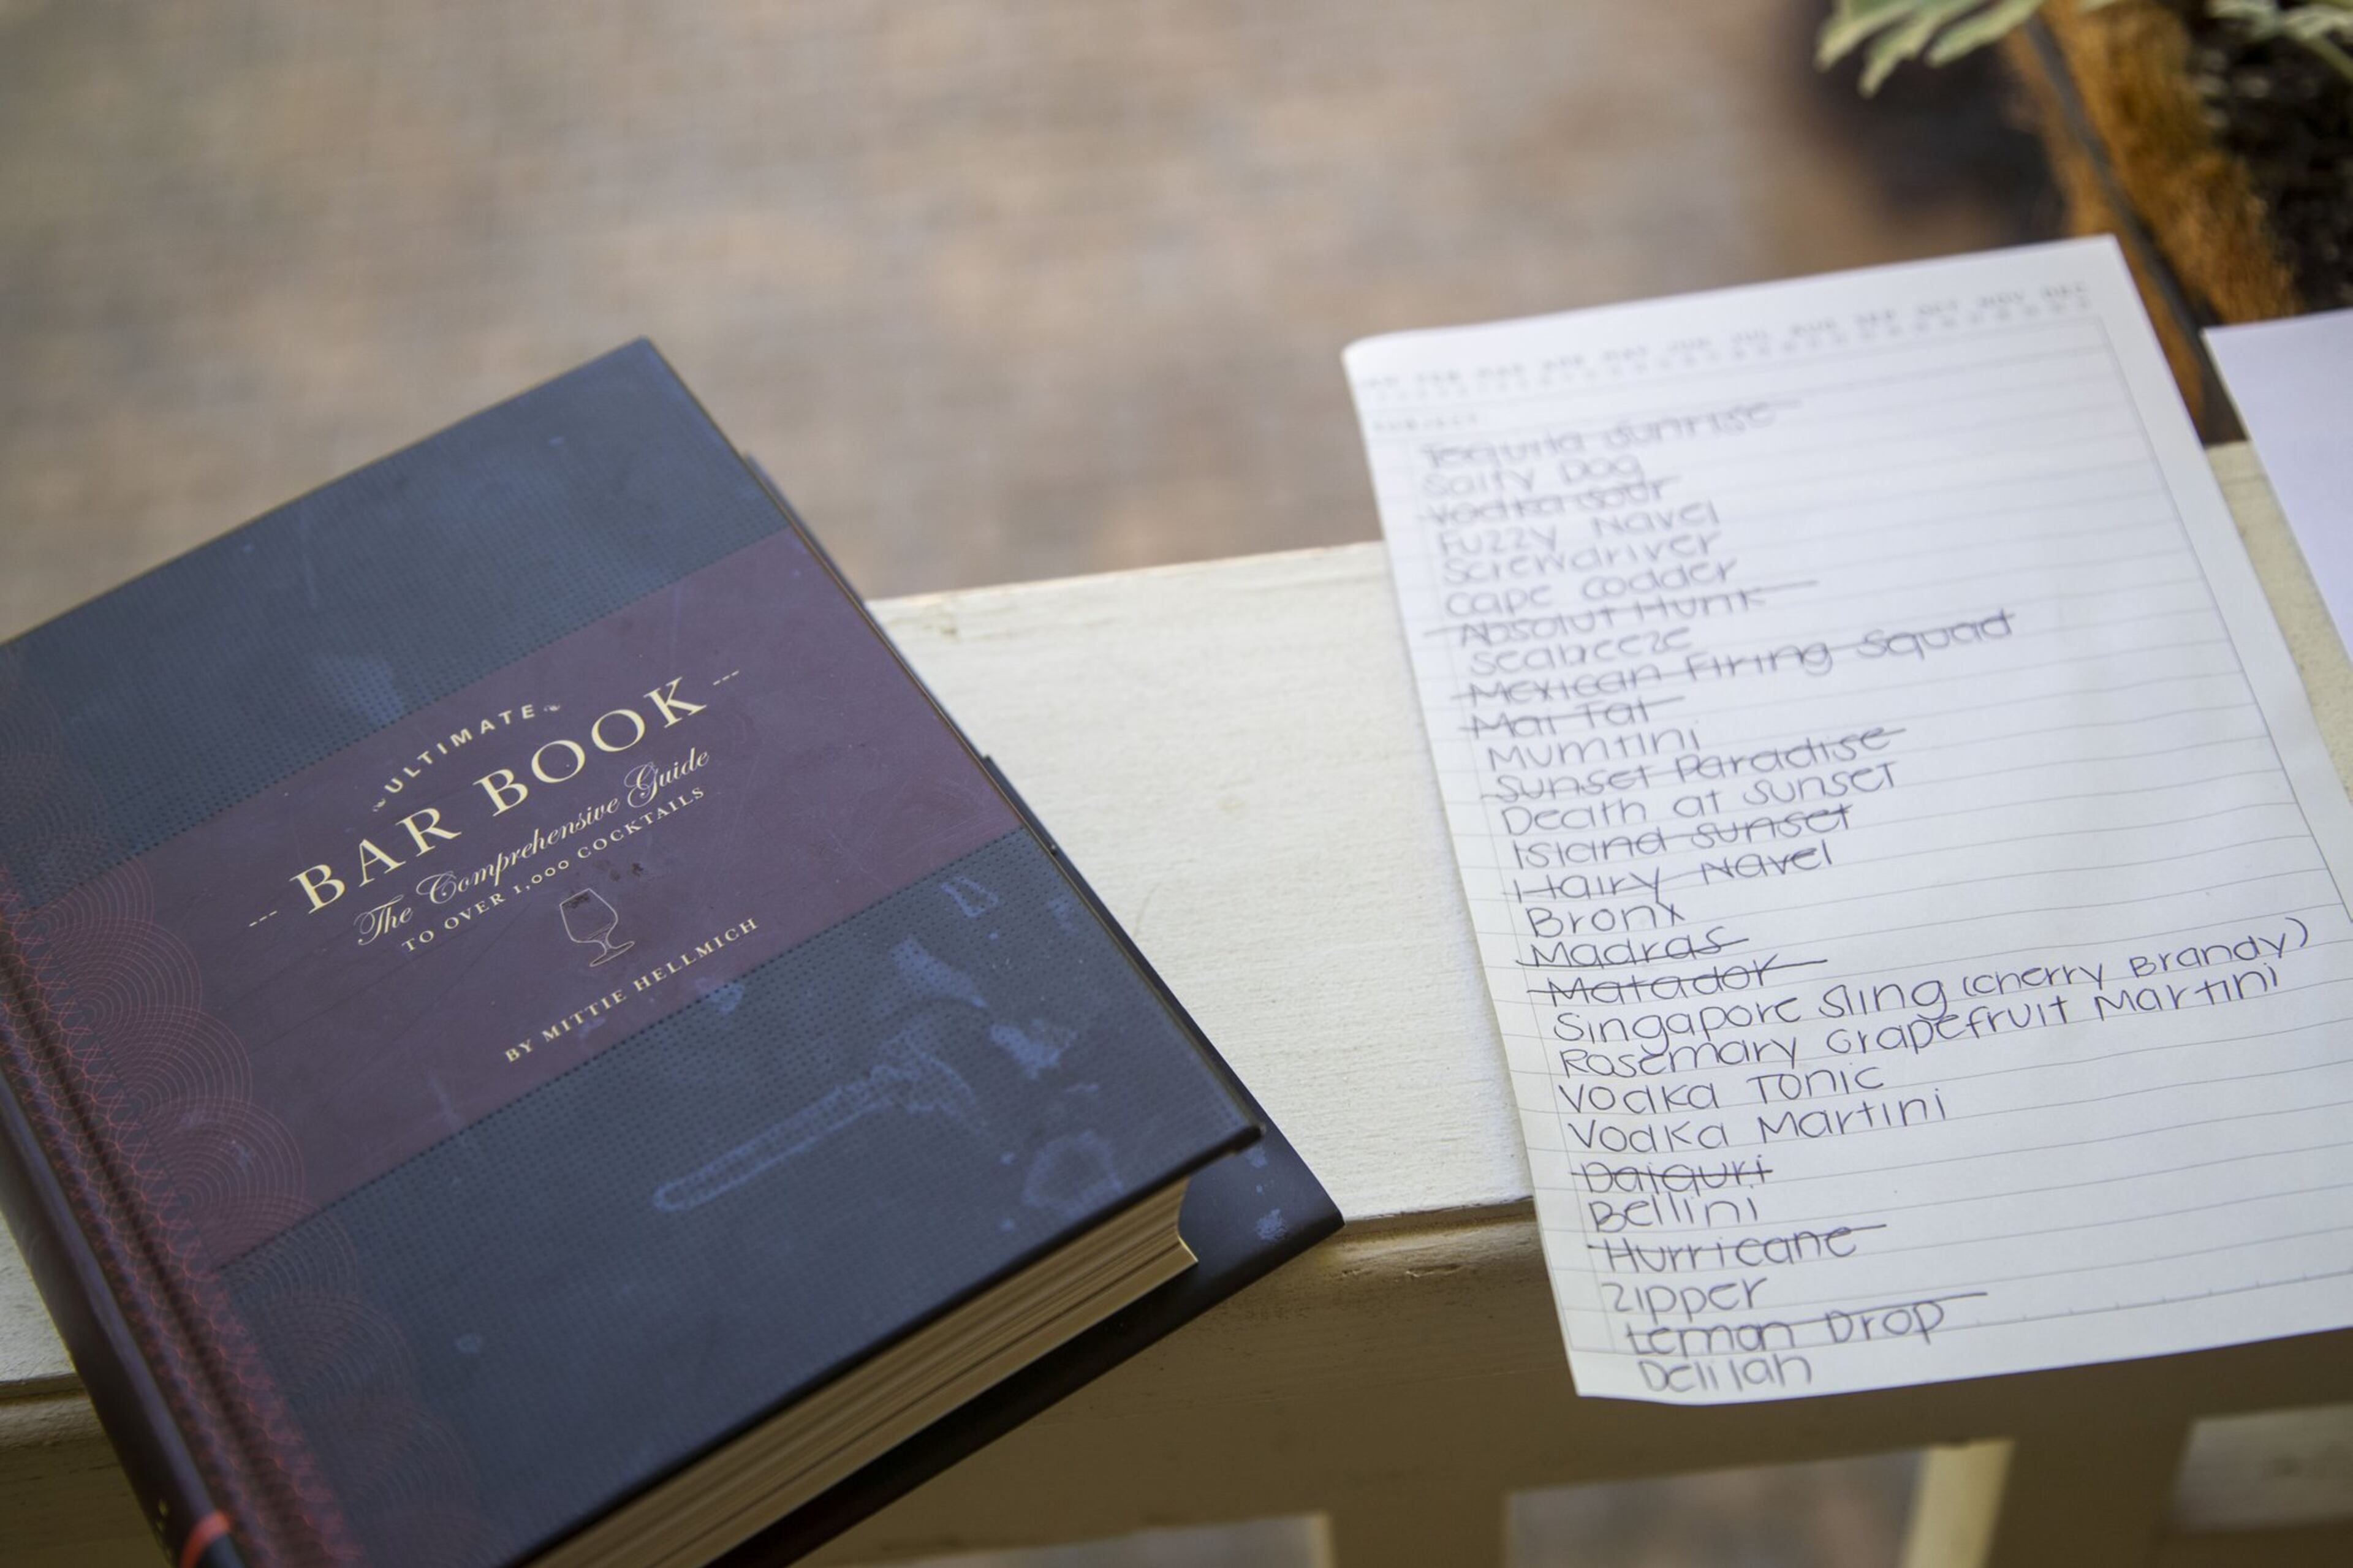 ULTIMATE
BAR BOOK
The Comprehensive Guide
TO OVER 1,000 COCKTAILS
BY MITTIE HELLMICH
JAN FEB MAR APR MAY JUN JUL AUG SEP OCT NOV DEC
SUBJECT
Tequila Sunrise
Salty Dog
Vodka Sour
Fuzzy Navel
Screwdriver
Cape Codder
Absolut Hunk
Seabeeze
Mexican Firing Squad
Mai Tai
Mumtini
Sunset Paradise
Death at Sunset
Island Sunset
Hairy Navel
Bronx
Madras
Matador
Singapore Sling (Cherry Brandy)
Rosemary Grapefruit Martini
Vodka Tonic
Vodka Martini
Daiquri
Bellini
Hurricane
Zipper
Lemon Drop
Delilah